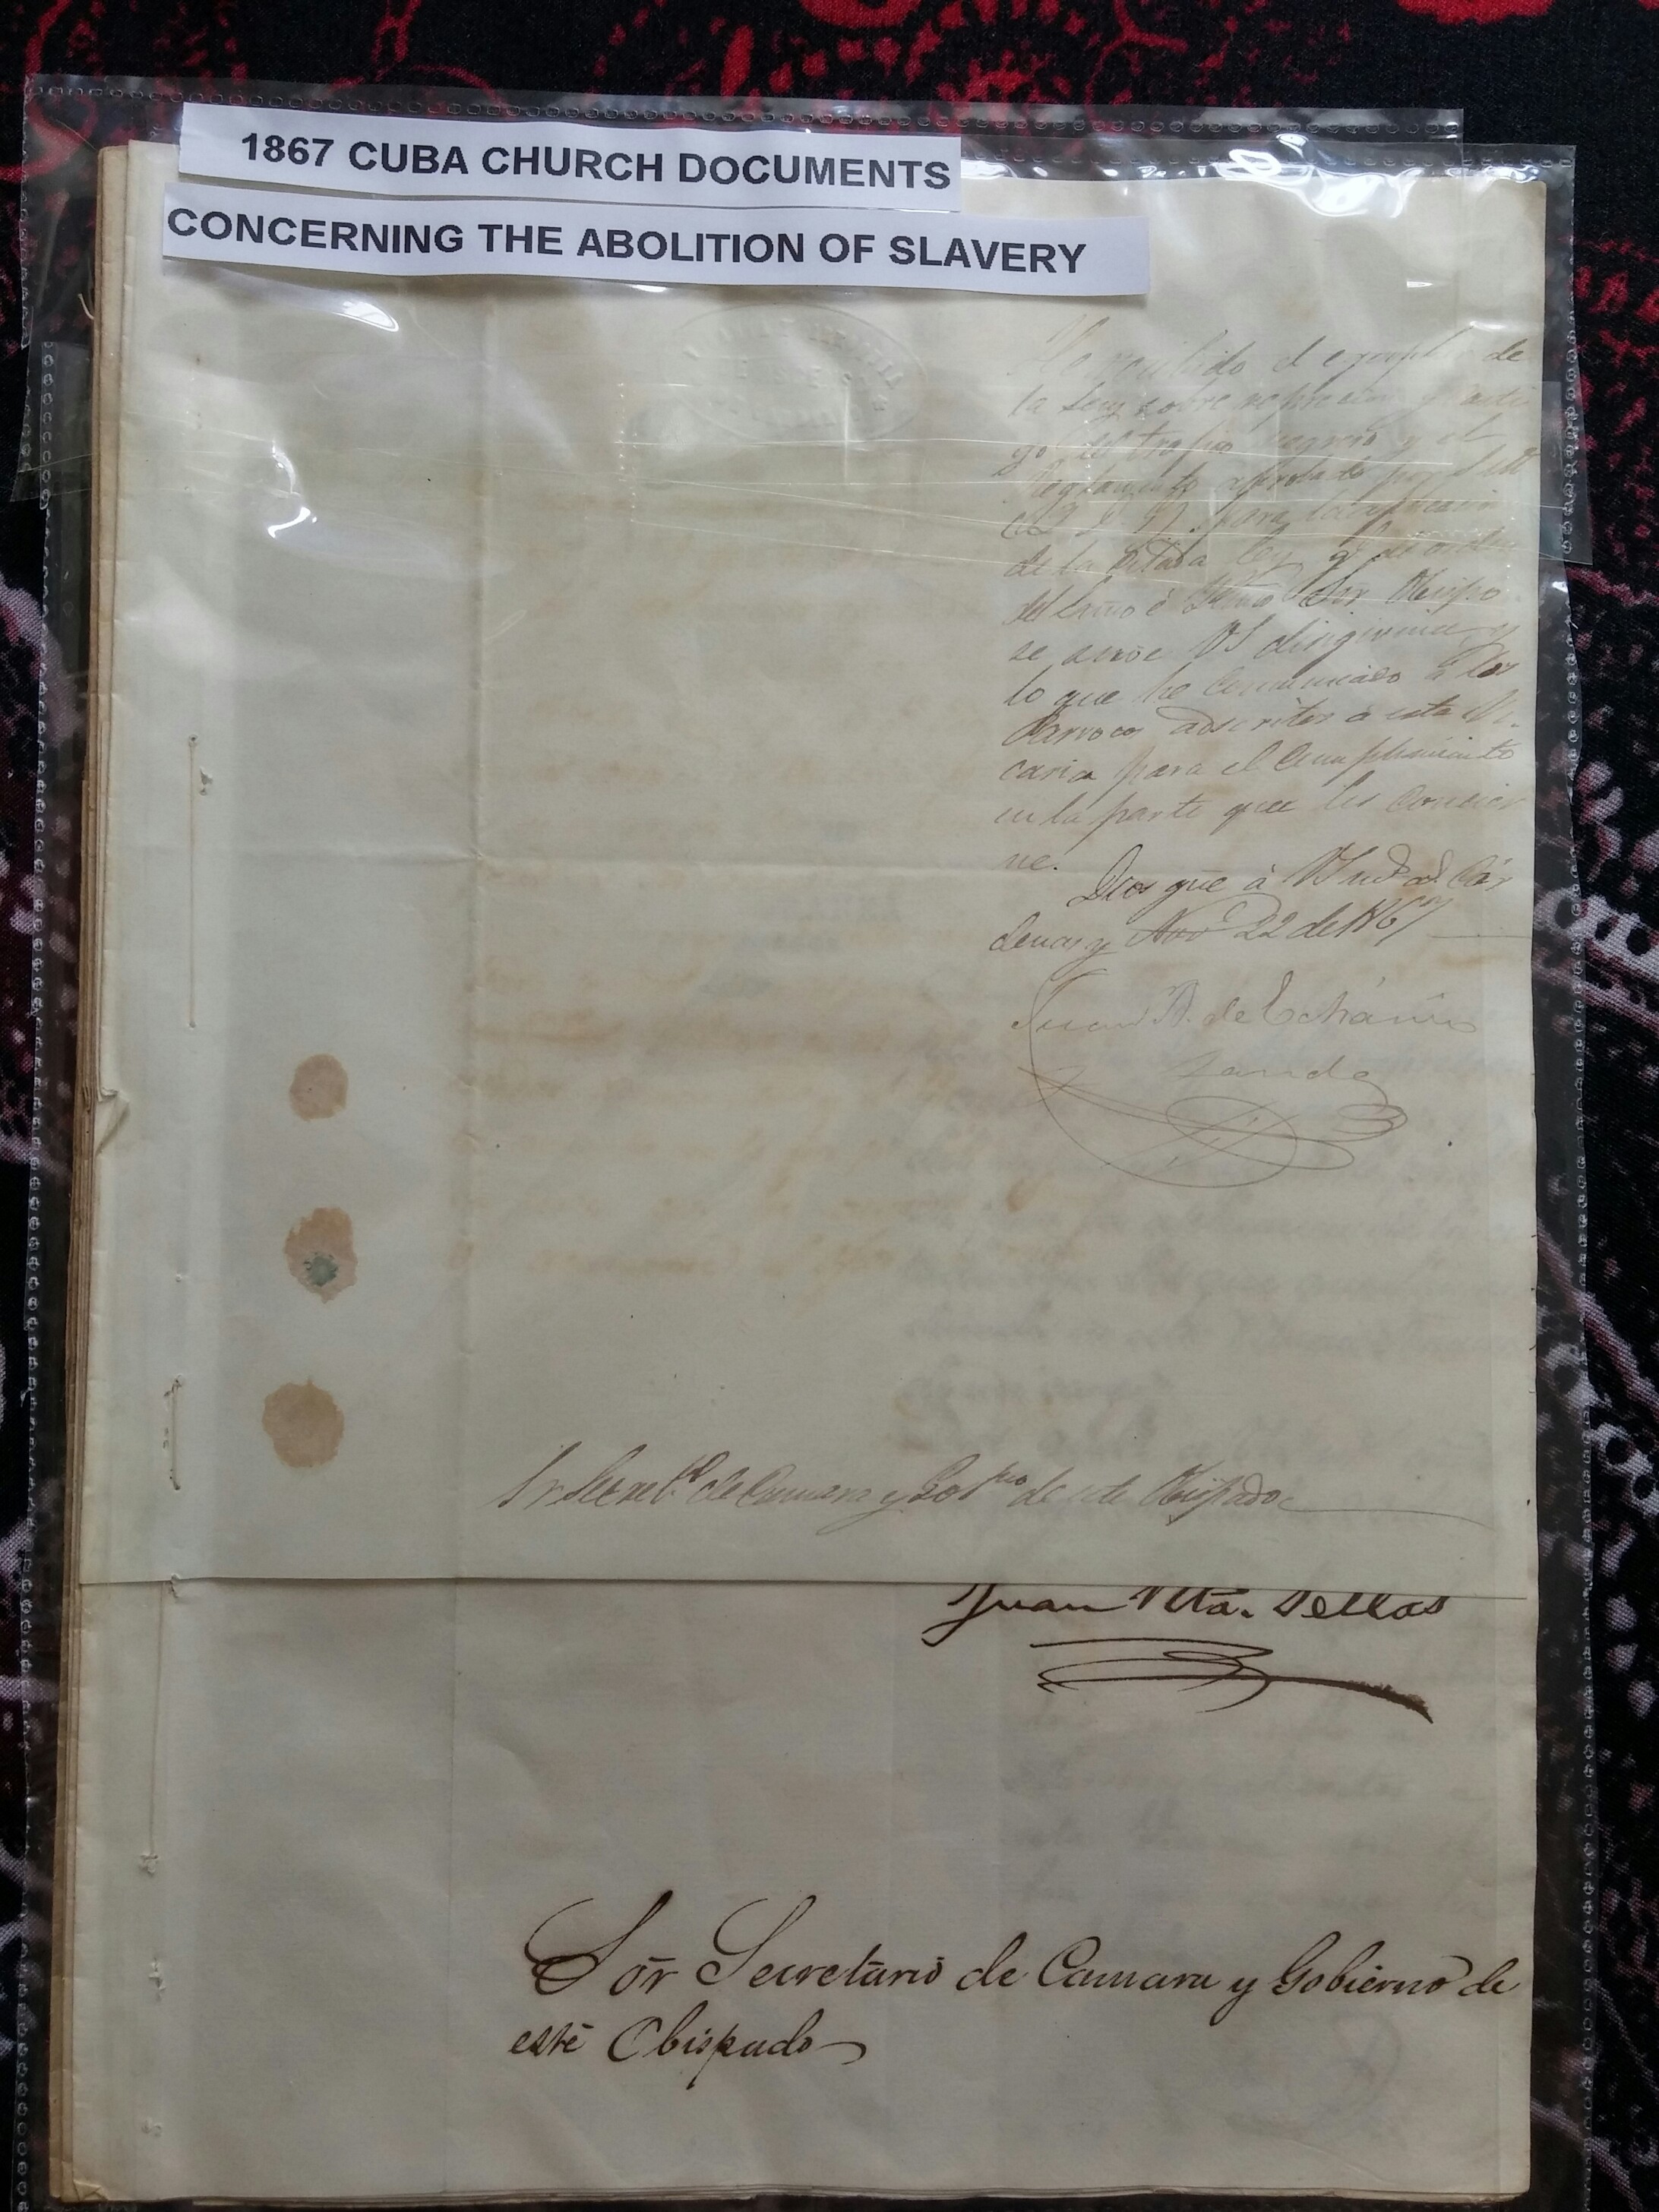 1867 CUBA CHURCH DOCUMENTS
CONCERNING THE ABOLITION OF SLAVERY
He recibido el ejemplar de
la Ley sobre represion y casti
go del trafico negrero y el
Reglamento aprobado por
para la aplicacion
de la citada ley q. de orden
del Exmo é Iltmo Sor Obispo
se sirve VS dirigirme y
lo que he comunicado à los
Parrocos adscritos a esta Vi-
caria para el cumplimiento
en la parte que les concier
ne.
Dios gue à VS ms as. Cár
denas y Nov 22 de 1867
Juan B. de Echániz
Sr Secret.o de Camara y Gobno de este Obispado
Juan Sellas
Sōr Secretario de Camara y Gobierno de
este Obispado